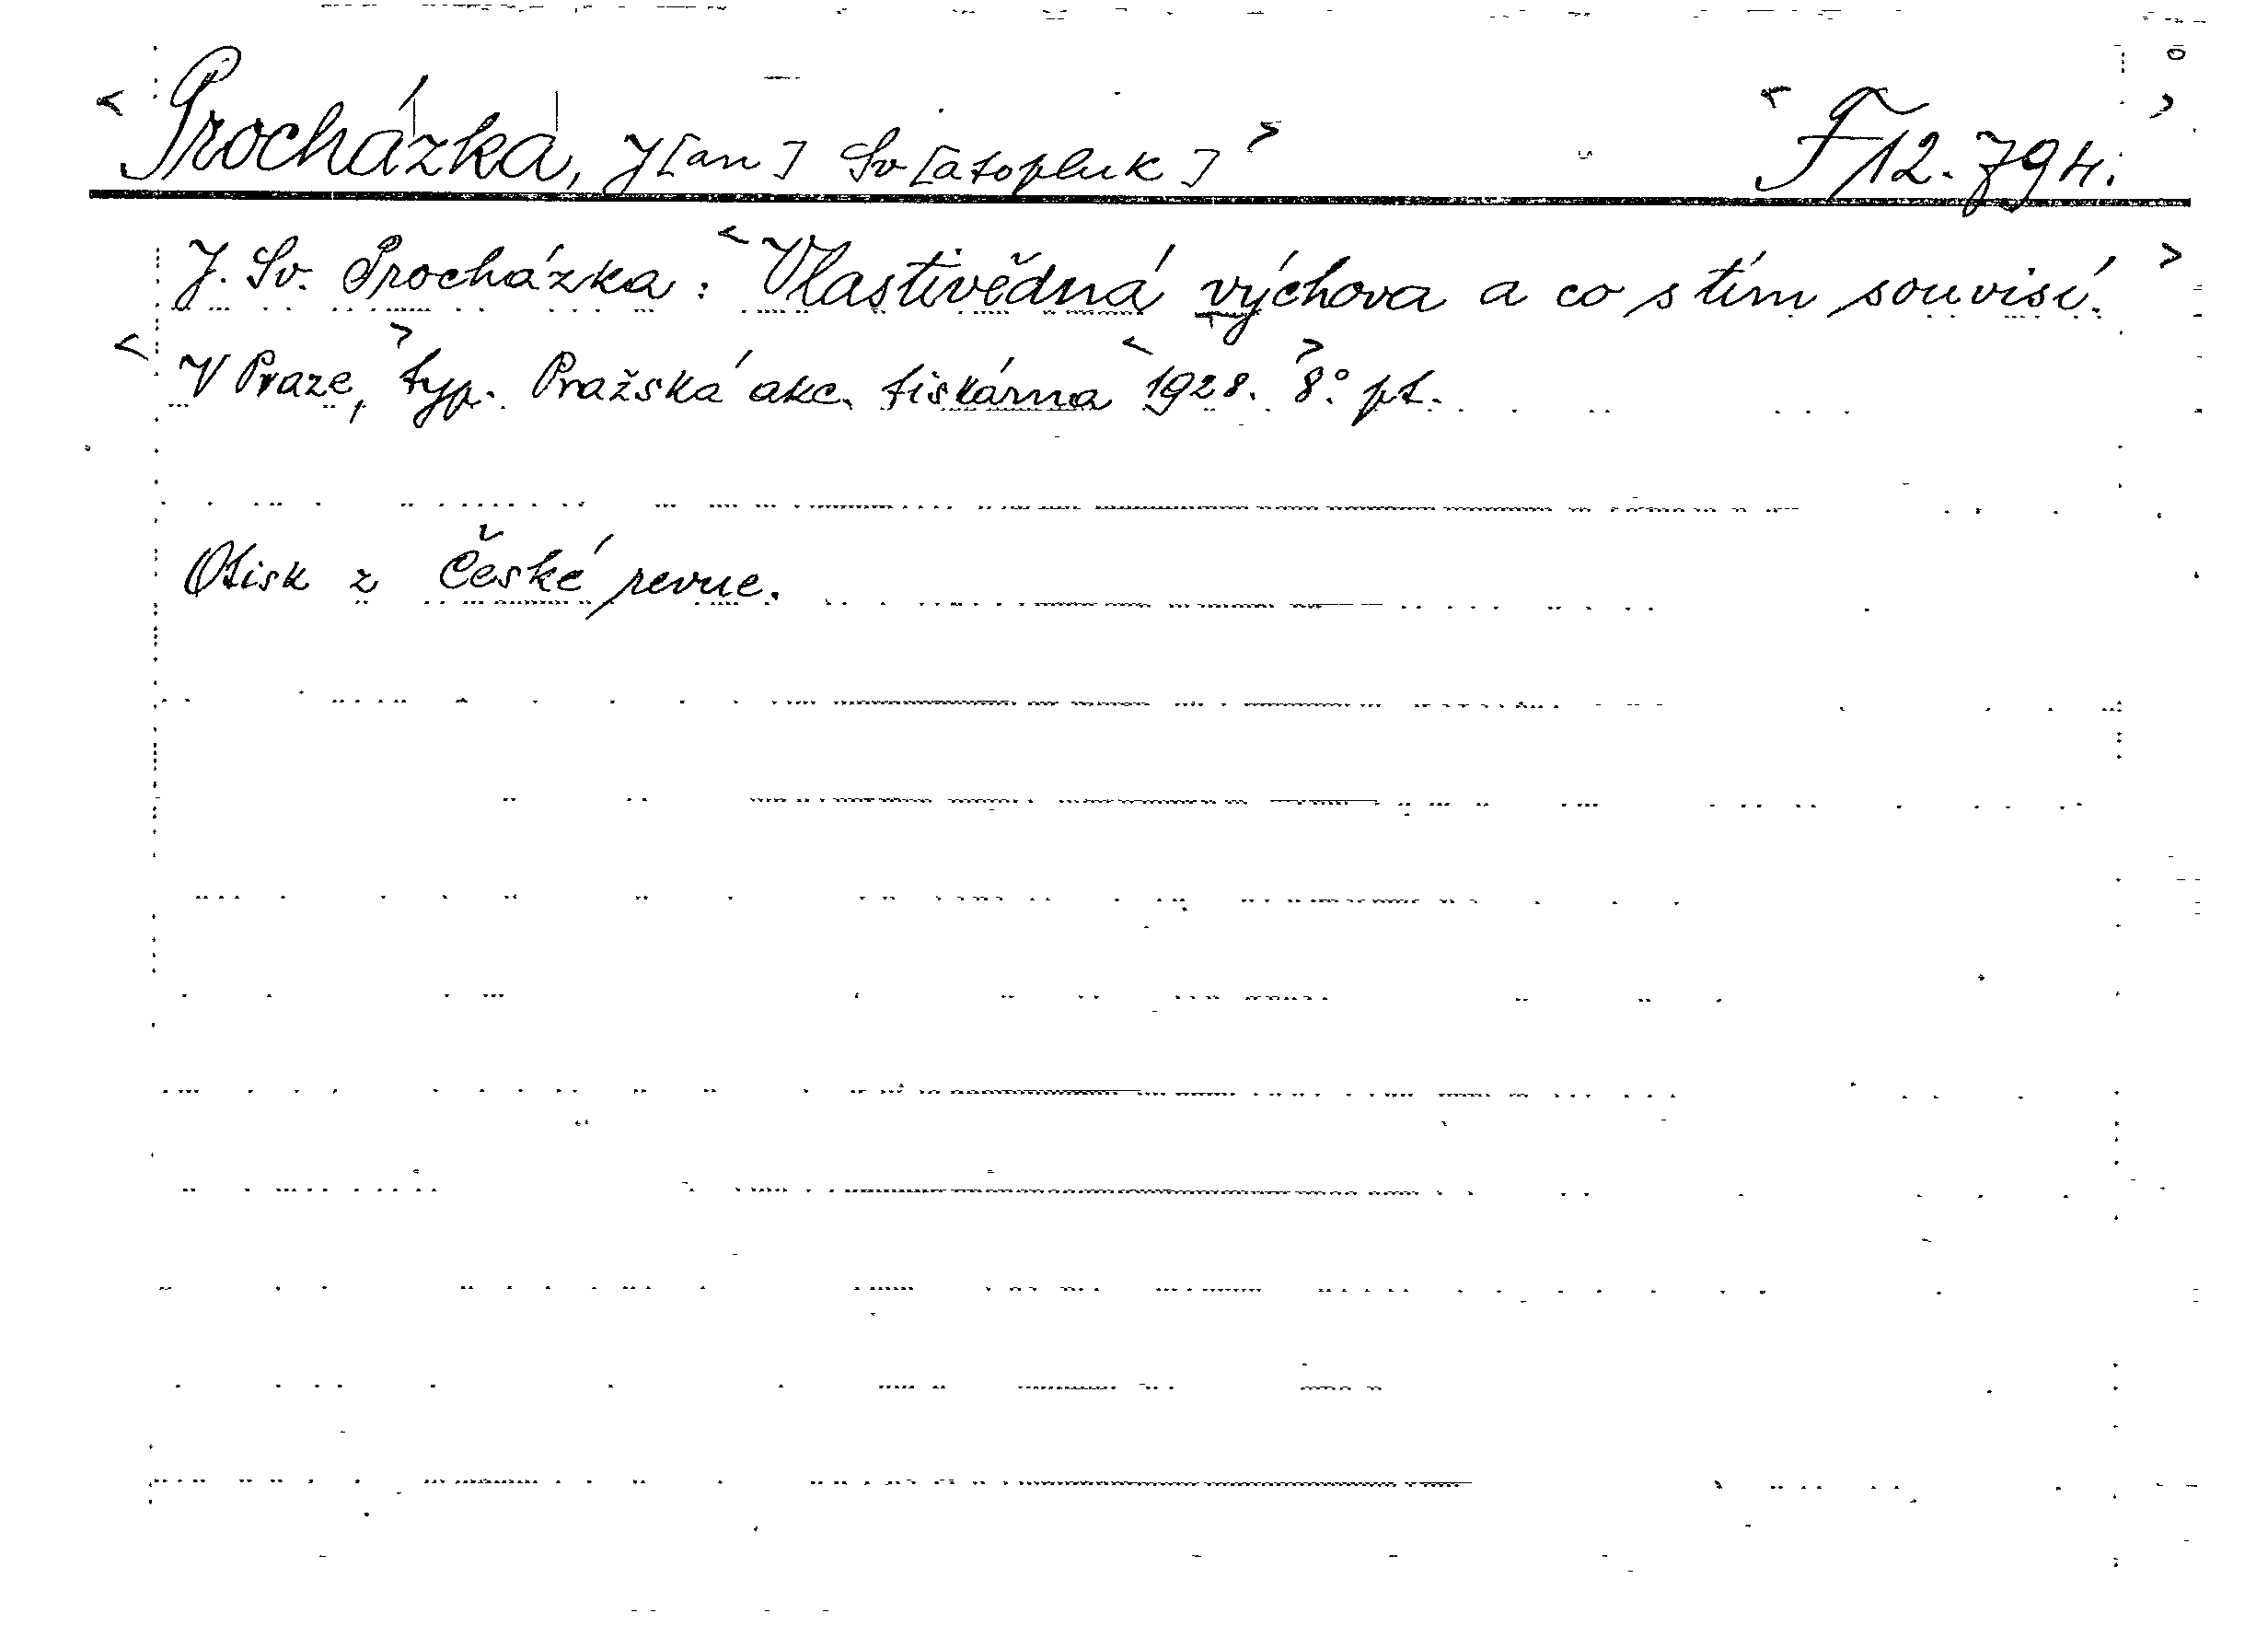 < Procházka, J[an] Sv[atopluk] > < F 12.794. >
J. Sv. Procházka: < Vlastivědná výchova a co s tím souvisí. >
< V Praze, > typ. Pražská akc. tiskárna < 1928. > 8° pt.
Otisk z České revue.